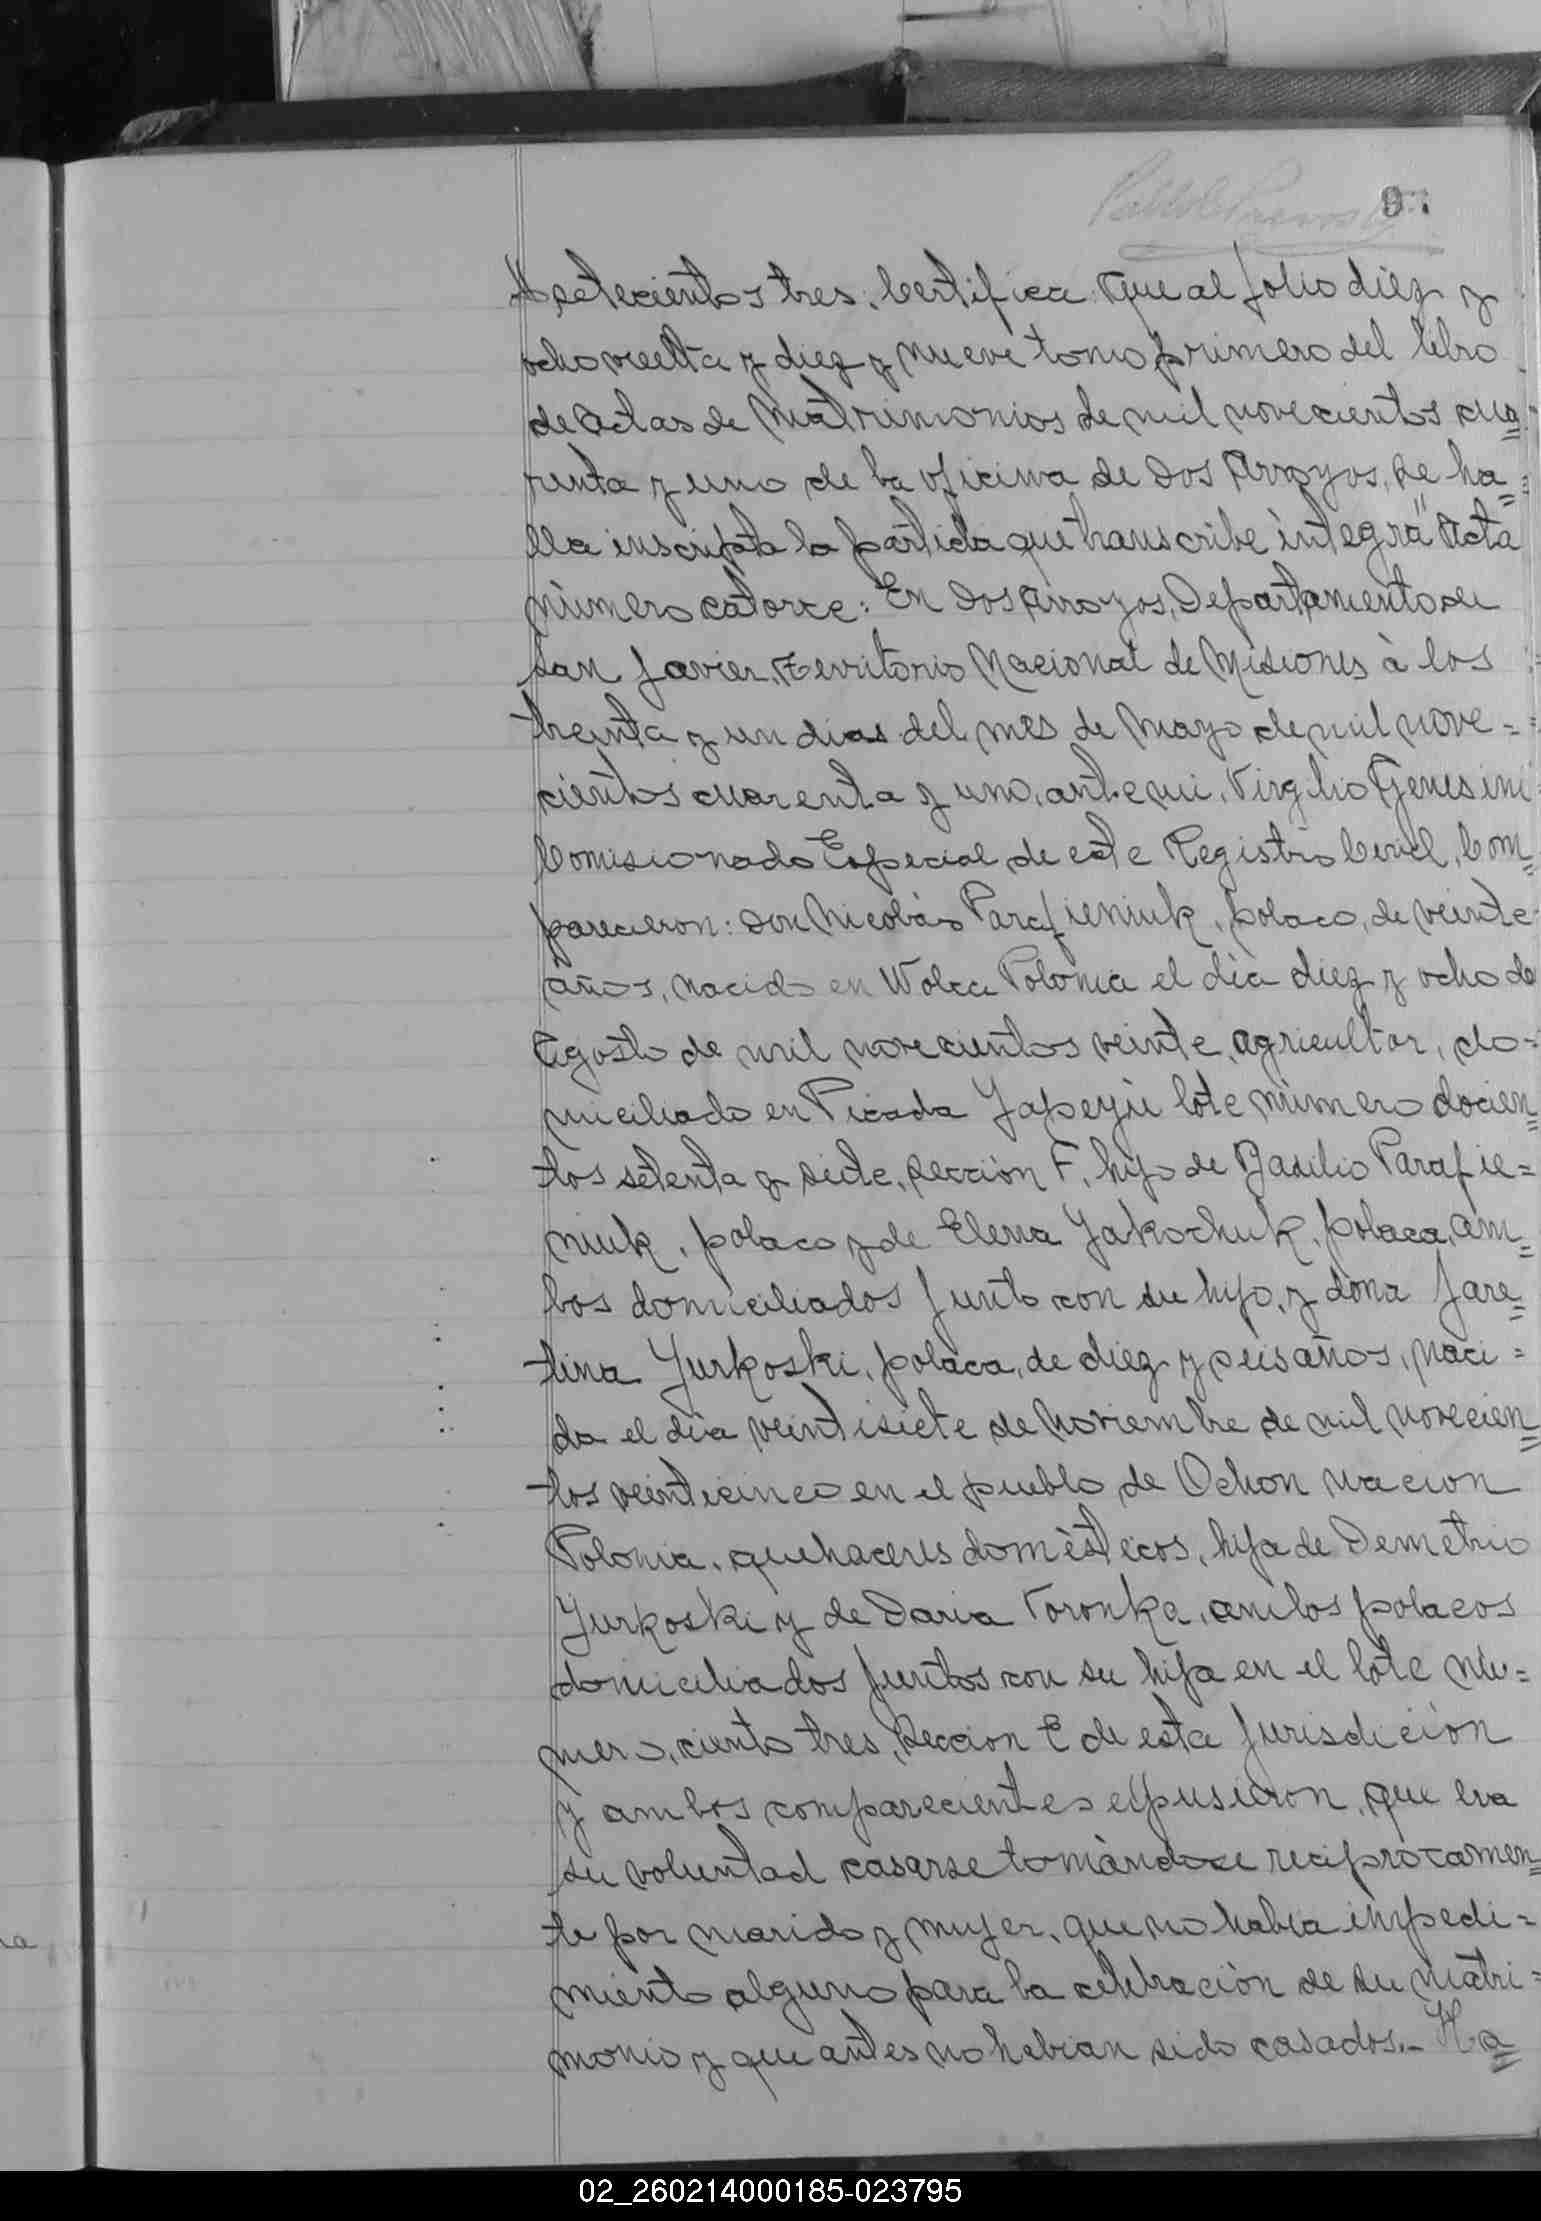 9
setecientos tres. Certifica: Que al folio diez y
ocho vuelta y diez y nueve tomo primero del libro
de Actas de Matrimonios de mil novecientos cua=
renta y uno de la oficina de Dos Arroyos, se ha=
lla inscripta la partida que transcribe íntegra "Acta
número catorce: En Dos Arroyos, Departamento de
San Javier, Territorio Nacional de Misiones à los
treinta y un dias del mes de Mayo de mil nove=
cientos cuarenta y uno, ante mi, Virgilio Genesini
Comisionado Especial de este Registro Civil, Com=
parecieron: Don Nicolás Parafieniuk, polaco, de veinte
años, nacido en Wolca Polonia el dia diez y ocho de
Agosto de mil novecientos veinte, agricultor, do=
miciliado en Picada Yapeyù lote número docien=
tos setenta y siete, sección F, hijo de Basilio Parafie=
niuk, polaco y de Elena Yakochuk, polaca, am=
bos domiciliados junto con su hijo, y doña Jare=
tina Yurkoski, polaca, de diez y seis años, naci=
da el dia veintisiete de Noviembre de mil novecien=
tos veinticinco en el pueblo de Ochon nacion
Polonia, quehaceres domèsticos, hija de Demetrio
Yurkoski y de Daria Voronka, ambos polacos
domiciliados juntos con su hija en el lote nù=
mero, ciento tres, Seccion E de esta Jurisdicción
y ambos comparecientes expusieron, que era
su voluntad casarse tomàndose recíprocamen=
te por marido y mujer, que no habia impedi=
miento alguno para la celebración de su matri=
monio y que antes no habian sido casados.- Ha=
02_260214000185-023795